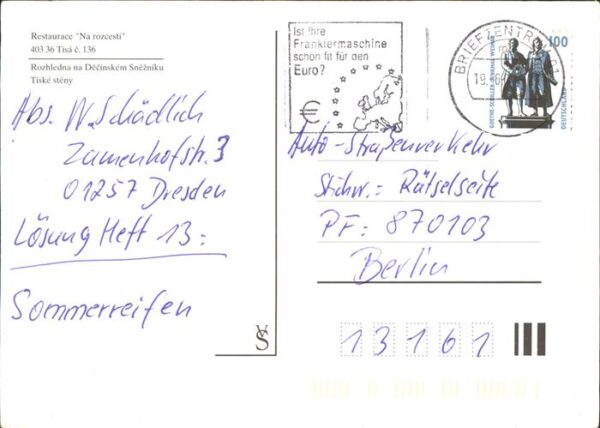 Restaurace "Na rozcestí"
403 36 Tisá č. 136
Rozhledna na Děčínském Sněžníku
Tiské stěny
Abs. W. Schädlich
Zamenhofstr. 3
01257 Dresden
Lösung Heft 13:
Sommerreifen
Ist Ihre
Frankiermaschine
schon fit für den
Euro?
€
BRIEFZENTRUM
100
GOETHE-SCHILLER-DENKMAL WEIMAR
DEUTSCHLAND
Auto-Straßenverkehr
Stichw.: Rätselseite
PF: 870103
Berlin
13161